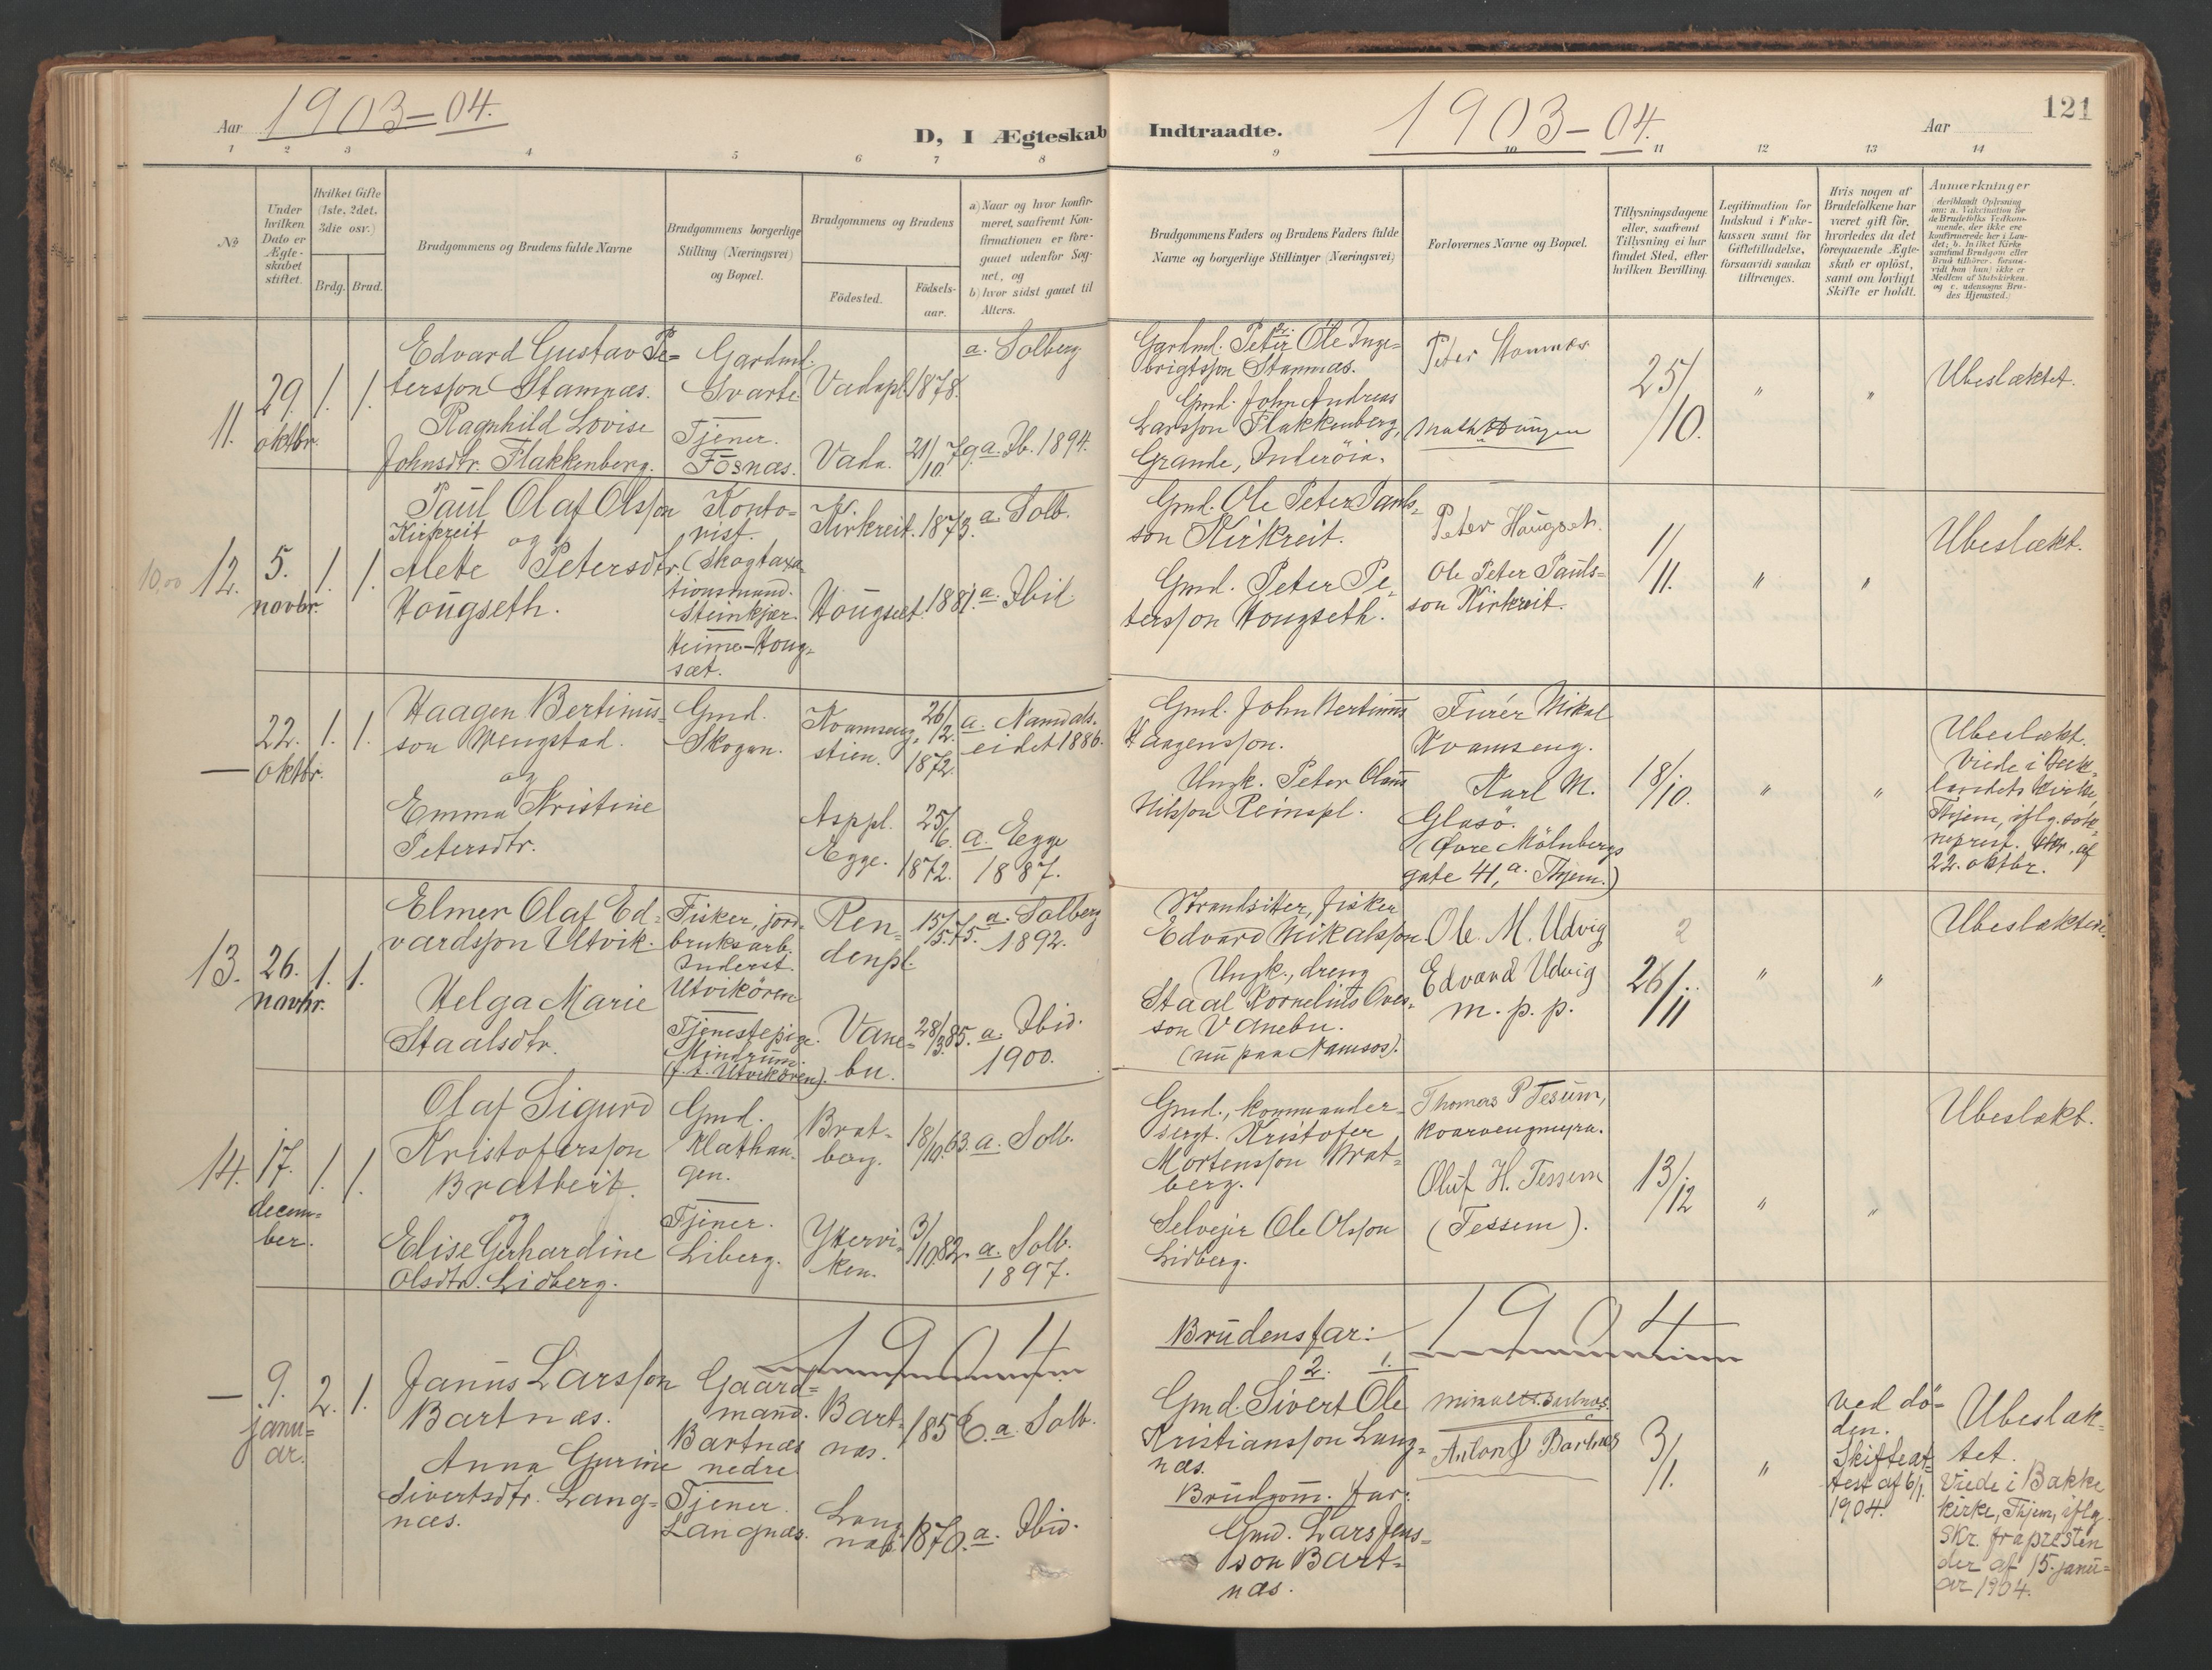 Aar 1903-04.
D, I Ægteskab
Indtraadte.
1903-04.
Aar
121
1 2 3 4 5 6 7 8 9 10 11 12 13 14
No
Under
hvilken
Dato er
Ægte-
skabet
stiftet.
Hvilket Gifte
(1ste, 2det,
3die osv.)
Brdg. Brud.
Brudgommens og Brudens fulde Navne
Brudgommens borgerlige
Stilling (Næringsvei)
og Bopæl.
Brudgommens og Brudens
Fødested.
Fødsels-
aar.
a) Naar og hvor konfir-
meret, saafremt Kon-
firmationen er fore-
gaaet udenfor Sog-
net, og
b) hvor sidst gaaet til
Alters.
Brudgommens Faders og Brudens Faders fulde
Navne og borgerlige Stillinger (Næringsvei)
Forlovernes Navne og Bopæl.
Tillysningsdagene
eller, saafremt
Tillysning ei har
fundet Sted, efter
hvilken Bevilling.
Legitimation for
Indskud i Enke-
kassen samt for
Giftetilladelse,
forsaavidt saadan
tiltrænges.
Hvis nogen af
Brudefolkene har
været gift før,
hvorledes da det
foregaaende Ægte-
skab er opløst,
samt om lovligt
Skifte er holdt.
Anmærkninger
(deriblandt Oplysning
om: a. Vakcination for
de Brudefolks Vedkom-
mende, der ikke ere
konfirmerede her i Lan-
det; b. hvilket Kirke
samfund Brudgom eller
Brud tilhører, forsaa-
vidt han (hun) ikke er
Medlem af Statskirken,
og c. udensogns Bru-
des Hjemsted.)
11.
29.
oktbr.
1. 1.
Edvard Gustav Pe-
tersson Stamnæs.
Ragnhild Lovise
Johnsdtr. Flakkenberg.
Gardmd.
Svarte
Tjener.
Fosnæs.
Vadapl.
Vada.
1878.
21/10 79.
a. Solberg
a. Ib. 1894.
Gardmd. Peter Ole Inge-
brigtsson Stamnæs.
Gmd. John Andreas
Larsson Flakkenberg,
Grande, Inderøia.
Peter Stamnæs
25/10.
" "
Ubeslæktet.
10,00
12.
5.
novbr.
1. 1.
Paul Olaf Olsson
Kirkreit
og
Alete Petersdtr.
Hougseth.
Konto-
rist.
(Skogtaxa-
tionsmand.
Steinkjær.
Heime-Houg-
sæt.
Kirkreit.
Hougset.
1873.
1881.
a. Solb.
a. Ibid.
Gmd. Ole Peter Pauls-
son Kirkreit.
Gmd. Peter Pe-
tersson Hougseth.
Peter Hougseth.
Ole Peter Pauls-
son Kirkreit.
1/11.
" "
Ubeslækt.
—
22.
oktbr.
1. 1.
Haagen Bertinus-
son Wengstad.
og
Emma Kristine
Petersdtr.
Gmd.
Skogan.
Kvamseng,
stien.
Asppl.
Egge.
26/12.
1872.
25/6.
1872.
a. Namdals-
eidet 1886.
a. Egge
1887.
Gmd. John Bertinus
Haagensson.
Ungk. Peter Olaus
Nilsson Reinspl.
Furér Mikal
Kvamseng.
Karl M.
Glasø.
(Øvre Mølnbergs
gate 41, a. Thjem.)
18/10.
" "
Ubeslækt.
Viede i Bak-
landets kirke,
Thjem, iflg. sok-
neprest. skr. af
22. oktbr.
13.
26.
novbr.
1. 1.
Elmer Olaf Ed-
vardsson Utvik.
Helga Marie
Staalsdtr.
Fisker, jord-
bruksarb.
Inderst.
Utvikøren
Tjenestepige.
Mindrum.
(f. t. Utvikøren).
Ren-
denpl.
Vane-
bu.
15/5 75.
28/3 85.
a. Solberg
1892.
a. Ibid.
1900.
Strandsiter, fisker
Edvard Mikalsson.
Ungk., dreng
Staal Kornelius Oves-
son Vanebu.
(nu paa Namsos).
Ole M. Udvig
Edvard Udvig
m. p. p.
2
26/11
" "
Ubeslæktede.
14.
17.
decem-
ber.
1. 1.
Olaf Sigurd
Kristofersson
Bratberg.
og
Elise Gerhardine
Olsdtr. Lidberg.
Gmd.
Klæthau-
gen.
Tjener.
Liberg.
Brat-
berg.
Yttervi-
ken.
18/10. 63.
3/10. 82.
a. Solb.
a. Solb.
1897.
Gmd., kommander-
sergt. Kristofer
Mortensson Brat-
berg.
Selvejer Ole Olsson
Lidberg.
Thomas P Tesum,
Kvarvengmyra.
Oluf H. Tessem
(Tessem).
13/12
" "
Ubeslækt.
1904
1904
—
9.
janu-
ar.
2. 1.
Janus Larsson
Bartnæs.
Anna Gurine
Sivertsdtr. Lang-
næs.
Gaard-
mand.
Bartnæs
nedre
Tjener.
Langnæs.
Bart-
næs.
Lang-
næs.
1856.
1870.
a. Solb.
a. Ibid.
Brudens far:
2. 1.
Gmd. Sivert Ole
Kristiansson Lang-
næs.
Brudgom. far:
Gmd. Lars Jens-
son Bart-
næs.
Anton J Bartnes
3/1.
"
Ved dø-
den.
Skifteat-
test af 6/1.
1904.
Ubeslæk-
tet.
Viede i Bakke
kirke, Thjem, iflg.
skr. fra presten
der af 15. janu-
ar 1904.